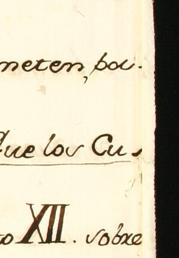 meten, po-
que los Cu-
to XII. sobre